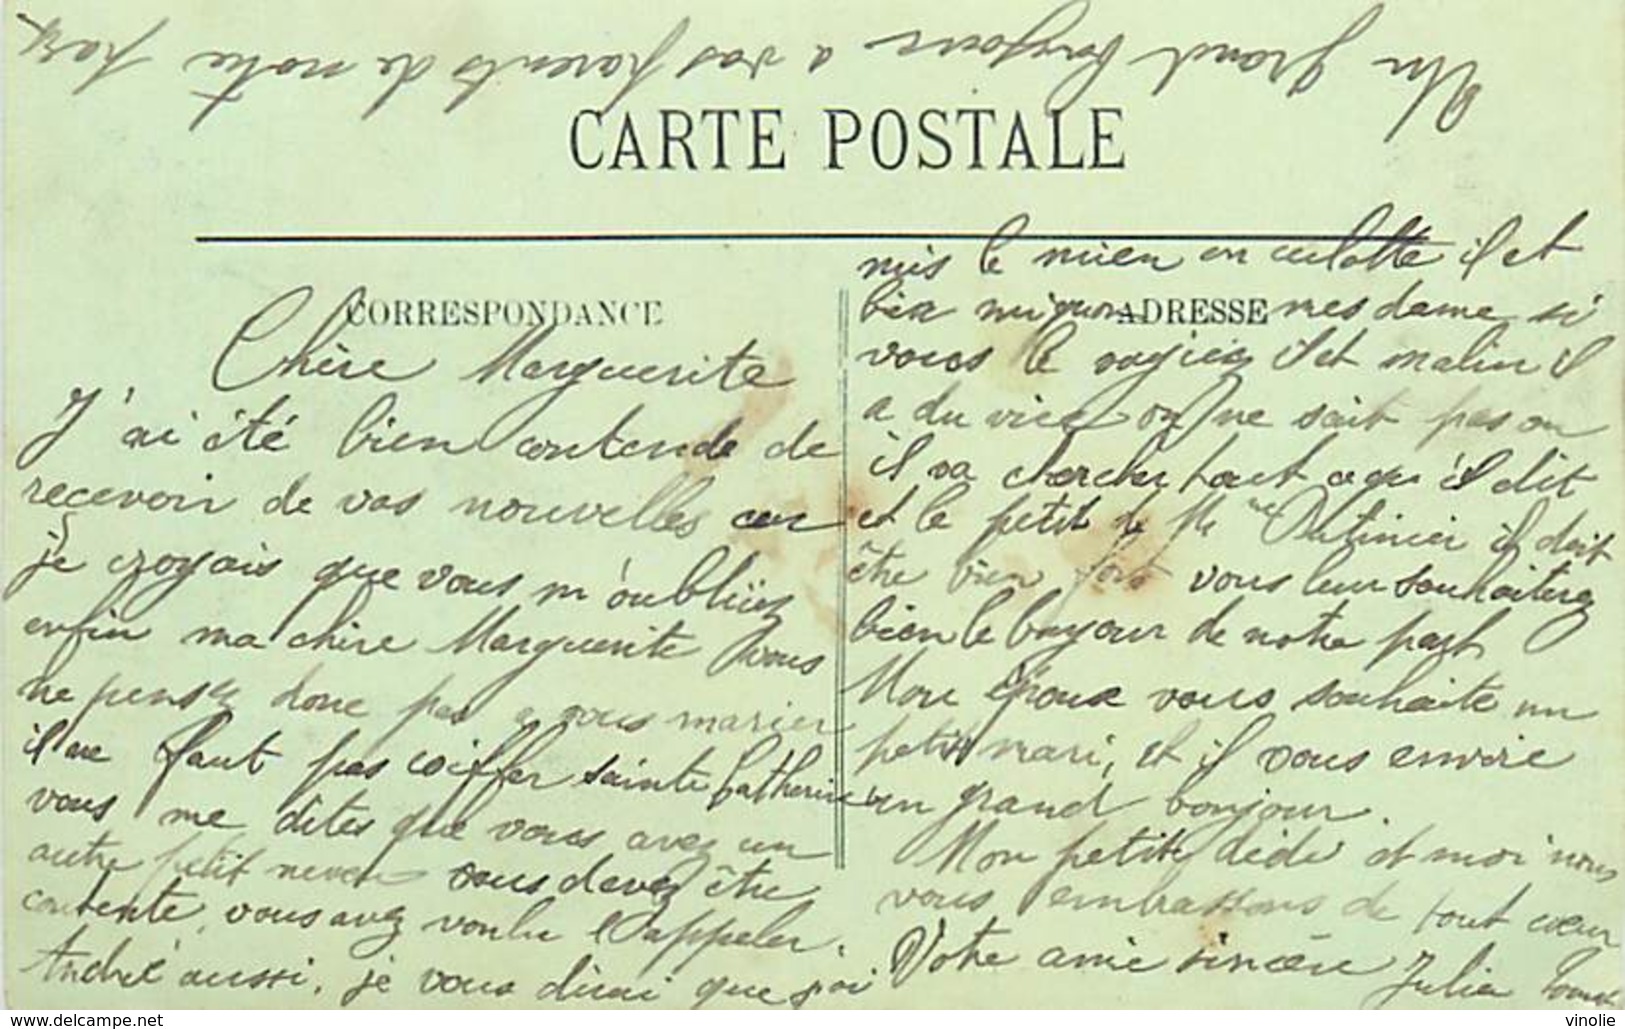 Un grand bonjour a vos parents de notre part
CARTE POSTALE
CORRESPONDANCE
Chère Marguerite
J'ai été bien contende de
recevoir de vos nouvelles car
je croyais que vous m'oubliiez
enfin ma chère Marguerite vous
ne pensez donc pas a vous marier
il ne faut pas coiffer sainte Catherine
vous me dites que vous avez un
autre petit neveu vous devez être
contente, vous avez voulu l'appeler
André aussi, je vous dirai que j'ai
ADRESSE
mis le mien en culotte il et
bien mignon mes dame si
vous le voyiez il et malin il
a du vice on ne sait pas ou
il va chercher tout ce qu'il dit
et le petit de Mme il doit
être bien fort vous leur souhaiterez
bien le bonjour de notre part
Mon époux vous souhaite un
petit mari, et il vous envoie
un grand bonjour.
Mon petit dédé et moi nous
vous embrassons de tout cœur
Votre amie sincère Julia
delcampe.net
vinolie